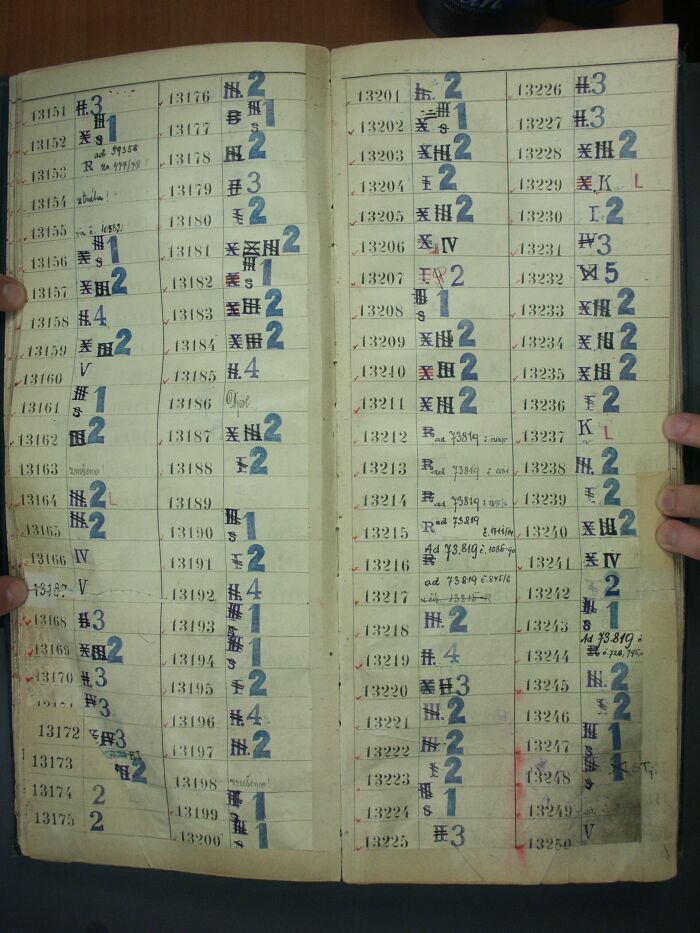 13151 II. 3
13152 X III 1
S
13153 R ad
No 479/48
13154
13155
13156 X III 1
S
13157 X III 2
13158 II. 4
13159 X III 2
13160 V
13161 III 1
S
13162 III 2
13163
13164 III. 2 L
13165 III. 2
13166 IV
13167 V
13168 II 3
13169 X III 2
13170 II. 3
IV 3
13172 X IV 3
13173 III 2
13174 2
13175 2
13176 III. 2
13177 B III 1
S
13178 III 2
13179 II 3
13180 I 2
13181 X X III 2
13182 X III 1
S
13183 X III 2
13184 X III 2
13185 II. 4
13186
13187 X III 2
13188 I 2
13189
13190 III 1
S
13191 I 2
13192 II. 4
13193 III 1
S
13194 III 1
S
13195 I 2
13196 II. 4
13197 III. 2
13198
13199 III 1
S
13200 III 1
S
13201 II. 2
13202 X III 1
S
13203 X III 2
13204 I 2
13205 X III 2
13206 X IV
13207 I 2
13208 III 1
S
13209 X III 2
13210 X III 2
13211 X III 2
13212 R ad 73819
13213 R ad 73819
13214 R ad 73819
13215 R ad 73819
13216 R Ad 73.819 č. 1086-90
13217 ad 73819 č. 845/6
13218 III. 2
13219 II. 4
13220 X II 3
13221 III. 2
13222 III. 2
13223 I 2
13224 III 1
S
13225 II 3
13226 II. 3
13227 II. 3
13228 X III 2
13229 X. K L
13230 I. 2
13231 IV 3
13232 VI 5
13233 X III 2
13234 X III 2
13235 X III 2
13236 I 2
13237 K L
13238 III. 2
13239 I 2
13240 X III 2
13241 X IV
13242 2
13243 III 1
S
13244 R Ad 73.819 č
13245 III. 2
13246 I 2
13247 III 1
S
13248 III 1
S
13249
13250 V